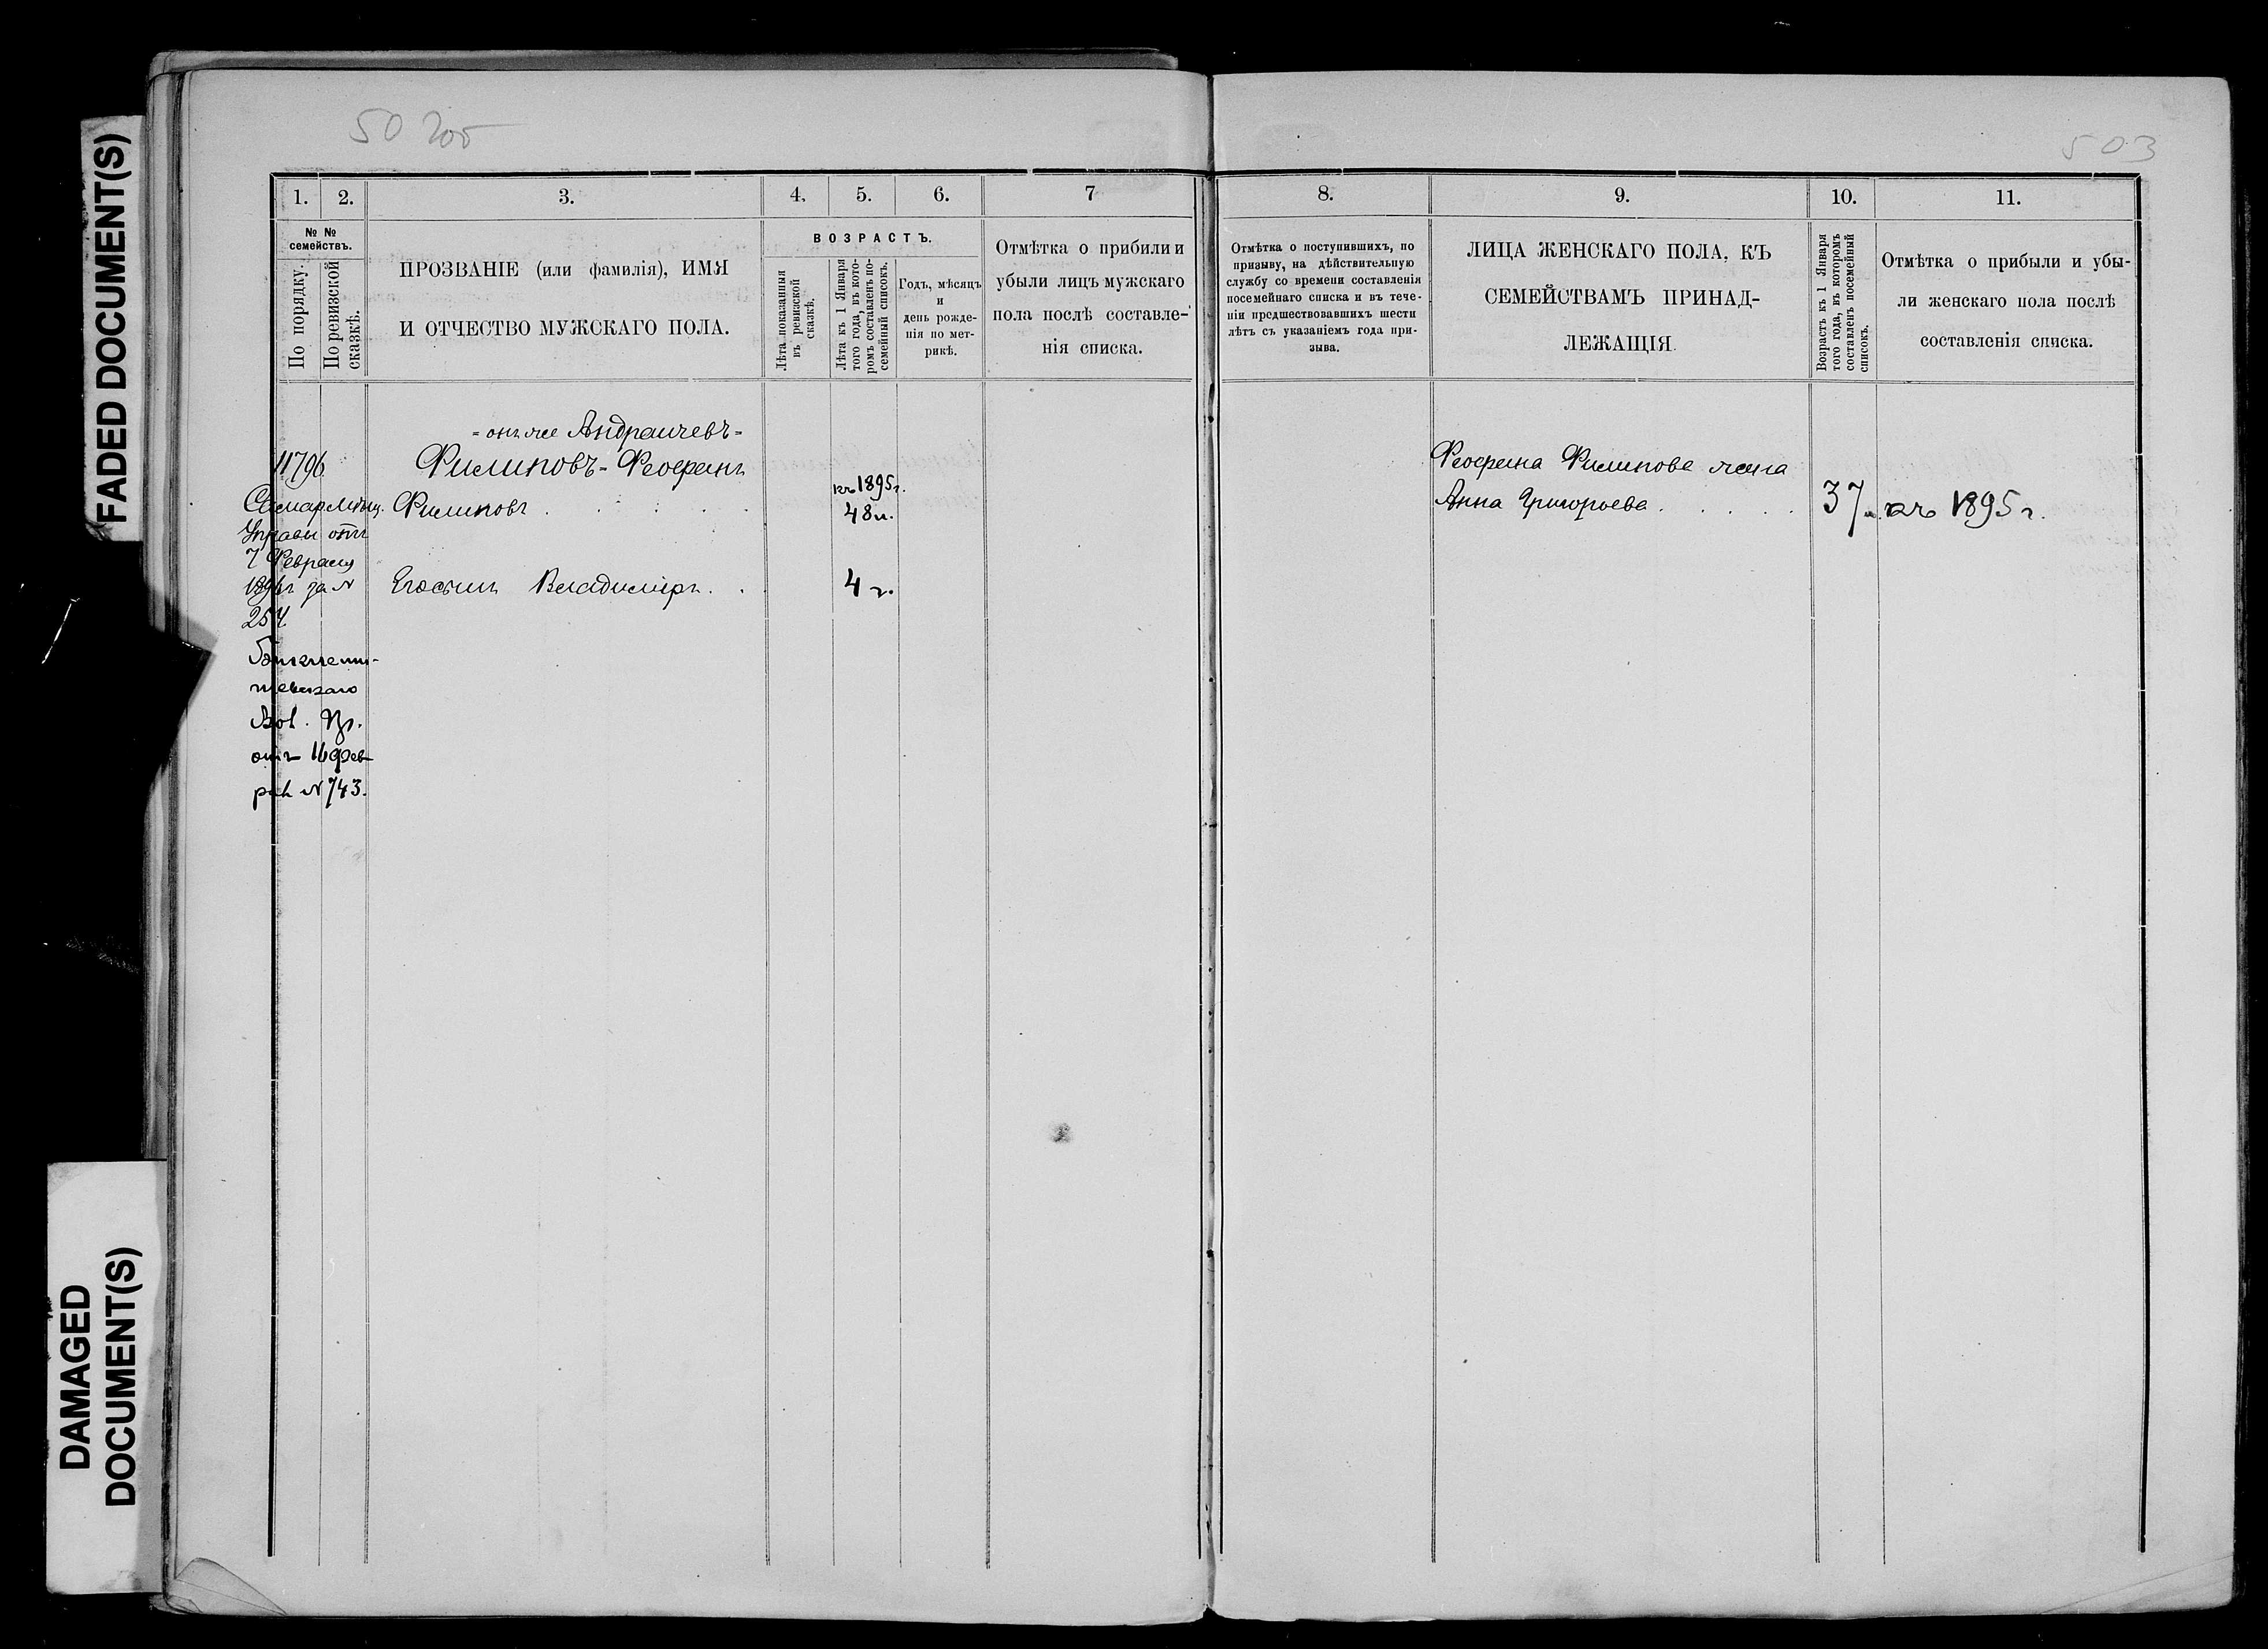 FADED DOCUMENT(S)
DAMAGED
DOCUMENT(S)
50 2об
503
1.
2.
3.
4.
5.
6.
7
№ №
семействъ.
По порядку.
По ревизской
сказкѣ.
ПРОЗВАНІЕ (или фамилія), ИМЯ
И ОТЧЕСТВО МУЖСКАГО ПОЛА.
ВОЗРАСТЪ.
Лѣта показанныя
въ ревизской
сказкѣ.
Лѣта къ 1 Января
того года, въ кото-
ромъ составленъ по-
семейный списокъ.
Годъ, мѣсяцъ
и
день рожде-
нія по мет-
рикѣ.
Отмѣтка о прибыли и
убыли лицъ мужскаго
пола послѣ составле-
нія списка.
= онъ же Андраичевъ =
11796
Филиповъ - Феофанъ
къ 1895 г.
Самар. мѣщ.
Филиповъ
48 л.
Управы отъ
7 Февраля
за №
Его сынъ Владиміръ
4 г.
254.
Вол. Пр.
отъ 16 фев-
рал № 743.
8.
9.
10.
11.
Отмѣтка о поступившихъ, по
призыву, на дѣйствительную
службу со времени составленія
посемейнаго списка и въ тече-
ніи предшествовавшихъ шести
лѣтъ съ указаніемъ года при-
зыва.
ЛИЦА ЖЕНСКАГО ПОЛА, КЪ
СЕМЕЙСТВАМЪ ПРИНАД-
ЛЕЖАЩІЯ.
Возрастъ къ 1 Января
того года, въ которомъ
составленъ посемейный
списокъ.
Отмѣтка о прибыли и убы-
ли женскаго пола послѣ
составленія списка.
Феофана Филипова жена
Анна Григорьева
37 л. къ 1895 г.